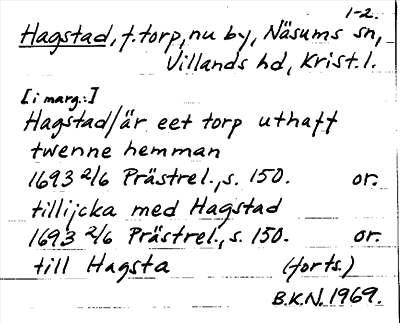 1-2.
Hagstad, f. torp, nu by, Näsums sn,
Villands hd, Krist. l.
[i marg.:]
Hagstad/är eet torp uthaff
twenne hemman
1693 2/6 Prästrel., s. 150. or.
tillijcka med Hagstad
1693 2/6 Prästrel., s. 150. or.
till Hagsta (forts.)
B.K.N. 1969.